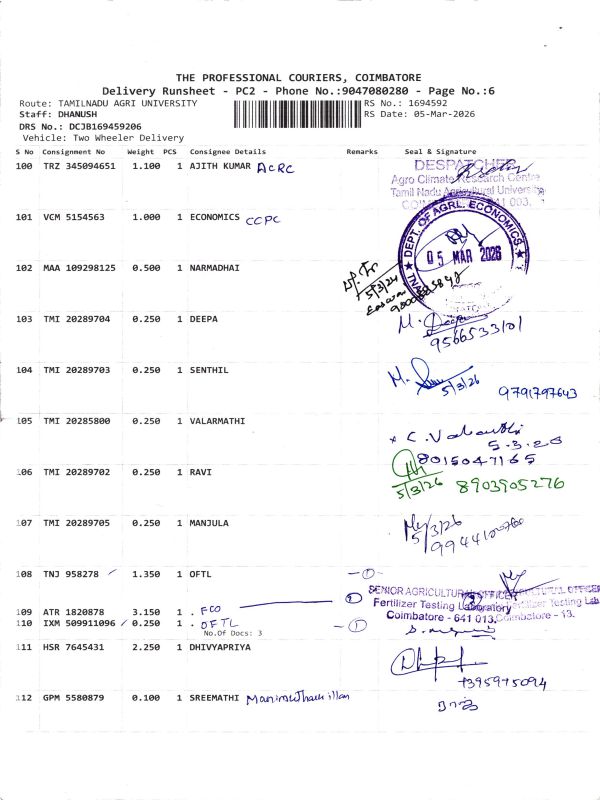 THE PROFESSIONAL COURIERS, COIMBATORE
Delivery Runsheet - PC2 - Phone No.:9047080280 - Page No.:6
Route: TAMILNADU AGRI UNIVERSITY
RS No.: 1694592
Staff: DHANUSH
RS Date: 05-Mar-2026
DRS No.: DCJB169459206
Vehicle: Two Wheeler Delivery
S No Consignment No Weight PCS Consignee Details Remarks Seal & Signature
100 TRZ 345094651 1.100 1 AJITH KUMAR ACRC
DESPATCHER
Agro Climate Research Centre
Tamil Nadu Agricultural University
COIMBATORE - 641 003.
101 VCM 5154563 1.000 1 ECONOMICS CCPC
DEPT. OF AGRL. ECONOMICS
05 MAR 2026
102 MAA 109298125 0.500 1 NARMADHAI
5/3/26
103 TMI 20289704 0.250 1 DEEPA
M. Deepa
9566533101
104 TMI 20289703 0.250 1 SENTHIL
M.
5/3/26
9791797643
105 TMI 20285800 0.250 1 VALARMATHI
x C. Valarmathi
5.3.26
8015047165
106 TMI 20289702 0.250 1 RAVI
5/3/26 8903905276
107 TMI 20289705 0.250 1 MANJULA
5/3/26
108 TNJ 958278 1.350 1 OFTL
1
SENIOR AGRICULTURAL OFFICER
Fertilizer Testing Laboratory
Coimbatore - 641 013.
109 ATR 1820878 3.150 1 . FCO
2
110 IXM 509911096 0.250 1 . OFTL
1
No.Of Docs: 3
111 HSR 7645431 2.250 1 DHIVYAPRIYA
7395975094
112 GPM 5580879 0.100 1 SREEMATHI